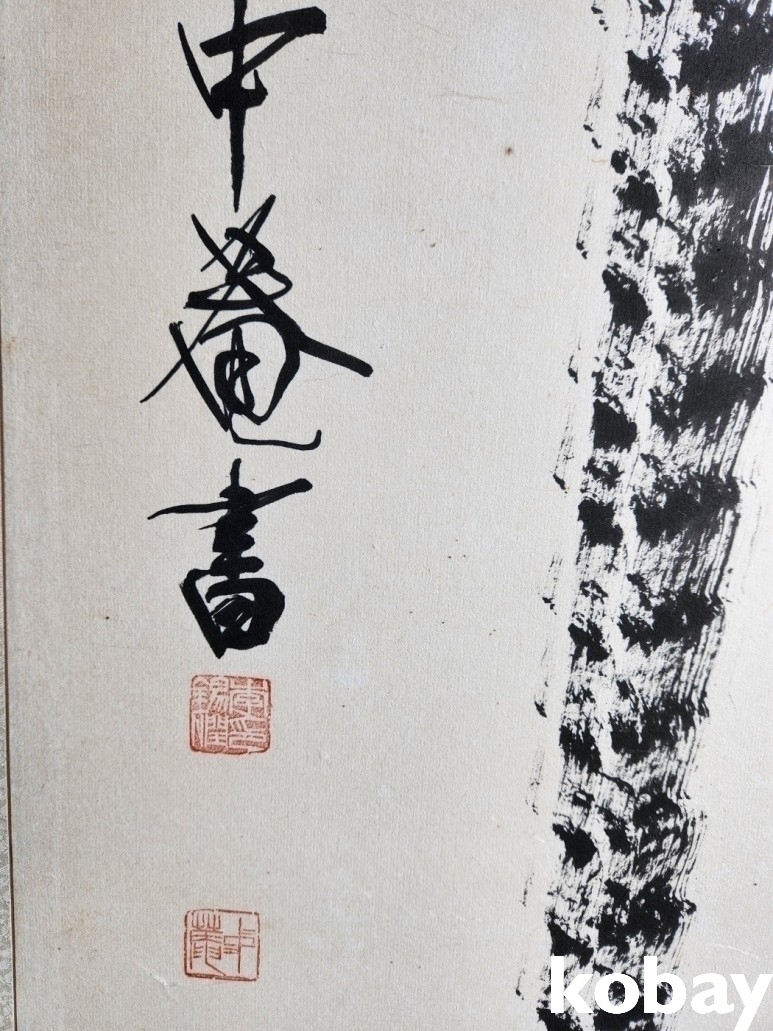 中
菴
書
中菴
kobay